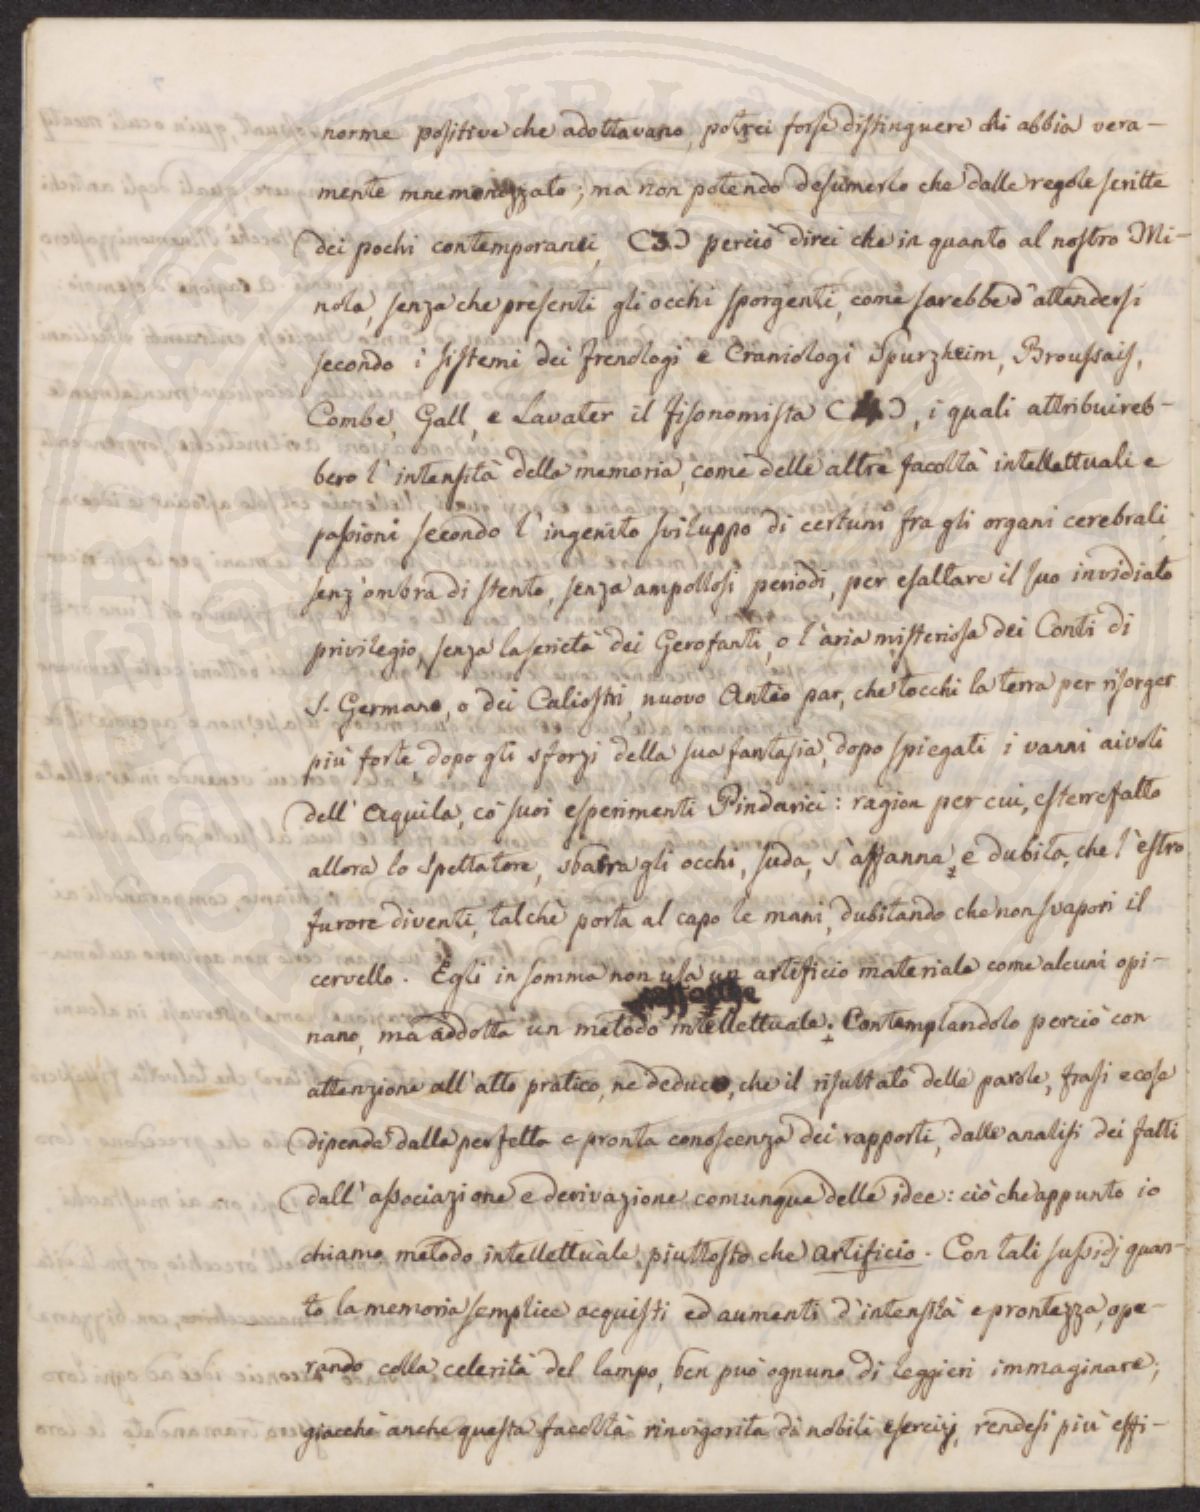 norme positive che adottavano, potrei forse distinguere chi abbia vera-
mente mnemonizzato; ma non potendo desumerlo che dalle regole scritte
dei pochi contemporanei, (3) perciò direi che in quanto al nostro Mi-
nola, senza che presenti gli occhi sporgenti, come sarebbe d'attendersi
secondo i sistemi dei frenologi e Craniologi Spurzheim, Broussais,
Combe, Gall, e Lavater il fisonomista (4), i quali attribuireb-
bero l'intensità della memoria, come delle altre facoltà intellettuali e
passioni secondo l'ingenito sviluppo di certuni fra gli organi cerebrali,
senz'ombra di stento, senza ampollosi periodi, per esaltare il suo invidiato
privilegio, senza la serietà dei Gerofanti, o l'aria misteriosa dei Conti di
S. Germano, o dei Caliostri, nuovo Anteo par, che tocchi la terra per risorger
più forte, dopo gli sforzi della sua fantasia, dopo spiegati i vanni aivoli
dell'Aquila, co' suoi esperimenti Pindarici: ragion per cui, esterrefatto
allora lo spettatore, sbarra gli occhi, suda, s'affanna, e dubita, che l'estro
furore diventi, talchè porta al capo le mani, dubitando che non svapori il
cervello. Egli in somma non usa un artificio materiale come alcuni opi-
nano, ma addotta un metodo intellettuale. Contemplandolo perciò con
attenzione all'atto pratico, ne deduco, che il risultato delle parole, frasi e cose
dipenda dalla perfetta e pronta conoscenza dei rapporti, dalle analisi dei fatti
dall'associazione e derivazione comunque delle idee: ciò che appunto io
chiamo metodo intellettuale, piuttosto che artificio. Con tali sussidj quan-
to la memoria semplice acquisti ed aumenti d'intensità e prontezza, ope-
rando colla celerità del lampo, ben può ognuno di leggieri immaginare;
giacchè anche questa facoltà rinvigorita da nobili esercizj, rendesi più effi-